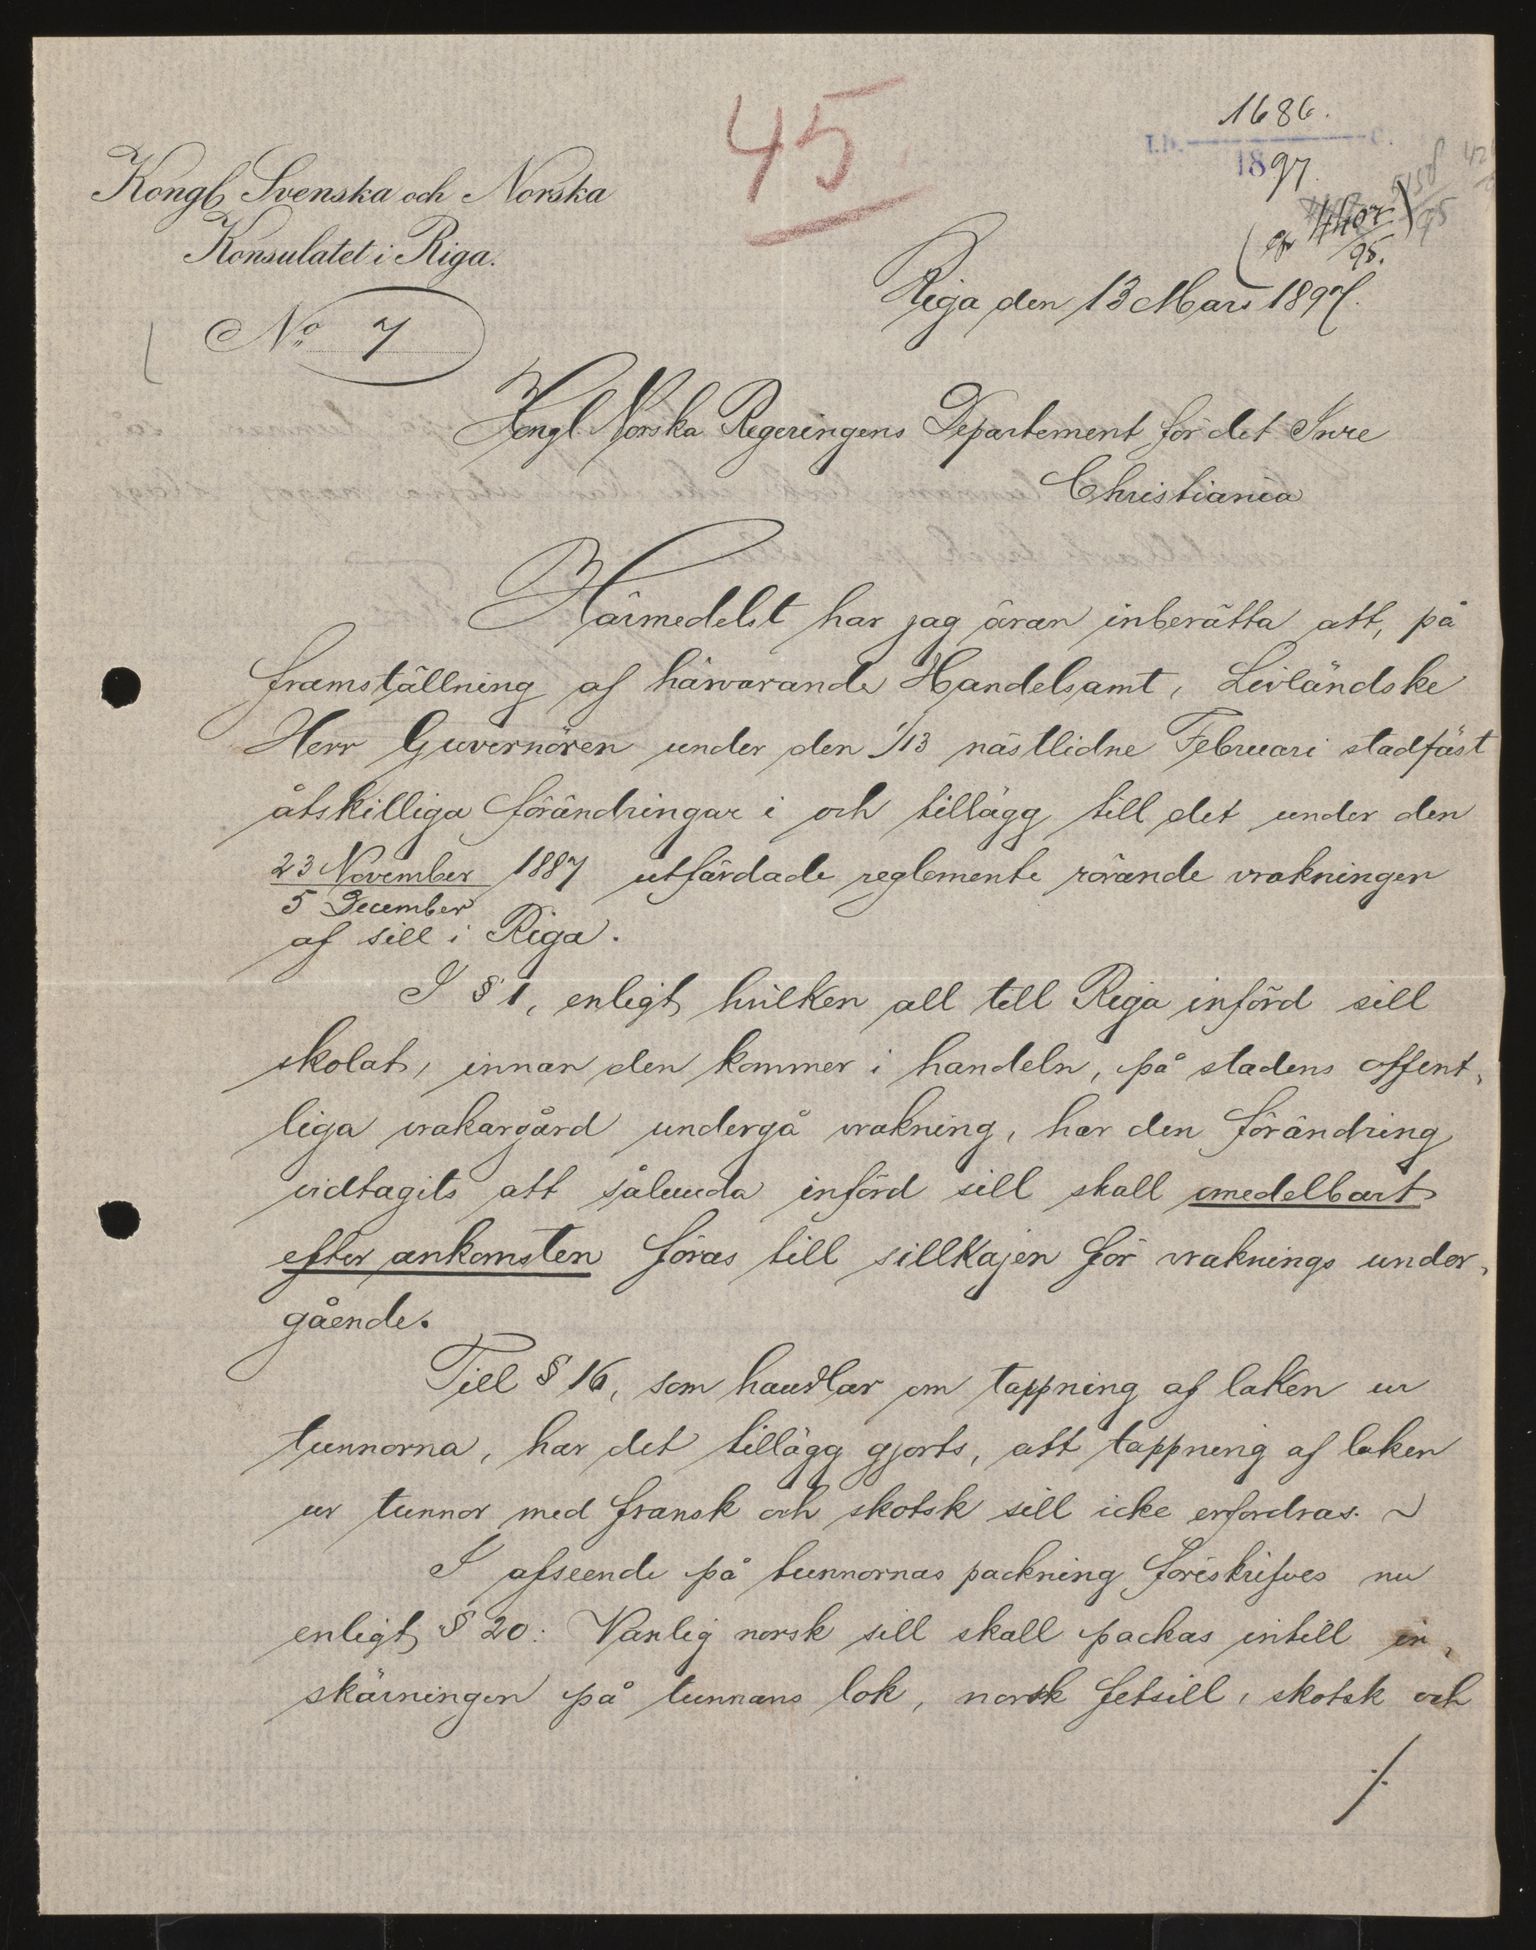 45
1686.
I.D. C.
1897.
(cfr 4407/95.)
Kongl. Svenska och Norska
Konsulatet i Riga.
No 7
Riga den 13 Mars 1897.
Kongl. Norska Regeringens Departement för det Inre
Christiania
Härmedelst har jag äran inberätta att, på
framställning af härvarande Handelsamt, Livländske
Herr Guvernören under den 1/13 nästlidne Februari stadfäst
åtskilliga förändringar i och tillägg till det under den
23 November 1887 utfärdade reglemente rörande vrakningen
5 December
af sill i Riga.
I § 1, enligt hvilken all till Riga införd sill
skolat, innan den kommer i handeln, på stadens offent-
liga vrakargård undergå vrakning, har den förändring
vidtagits att sålunda införd sill skall omedelbart
efter ankomsten föras till sillkajen för vraknings under-
gående.
Till § 16, som handlar om tappning af laken ur
tunnorna, har det tillägg gjorts, att tappning af laken
ur tunnor med fransk och skotsk sill icke erfordras. ~
I afseende på tunnornas packning föreskrifves nu
enligt § 20: Vanlig norsk sill skall packas intill in-
skärningen på tunnans lok, norsk fetsill, skotsk och
./.